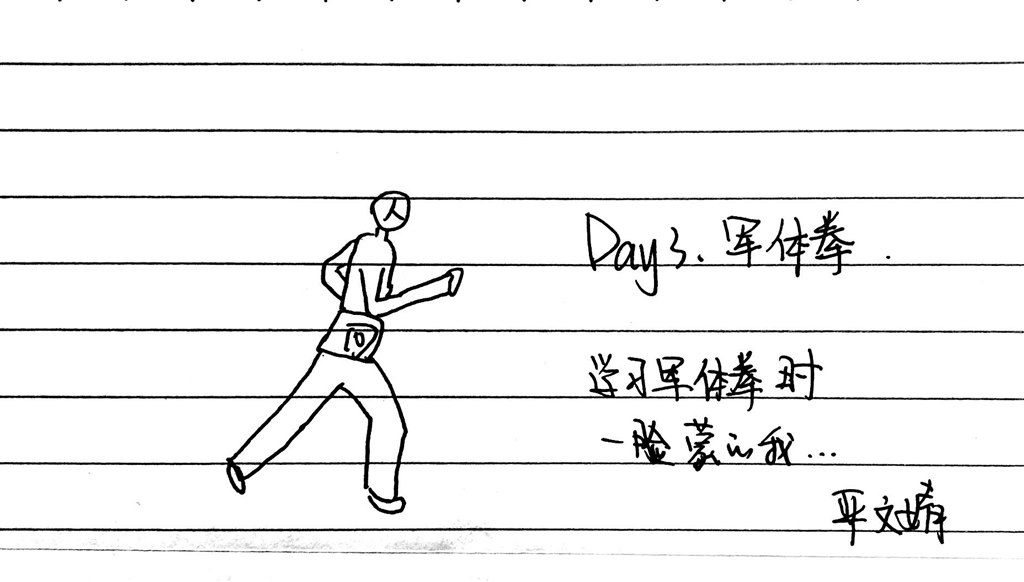 人
Day 3、军体拳.
10
学习军体拳时
一脸蒙的我...
平文婧